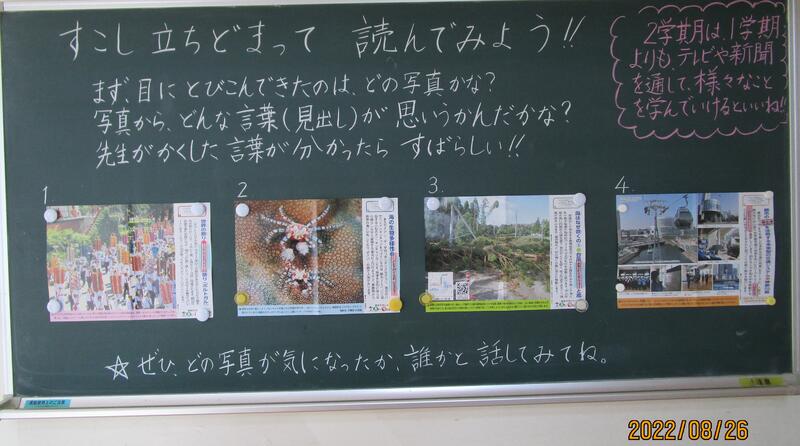 すこし立ちどまって 読んでみよう!!
まず、目にとびこんできたのは、どの写真かな？
写真から、どんな言葉(見出し)が思いうかんだかな？
先生がかくした言葉が分かったら すばらしい!!
2学期は、1学期
よりも、テレビや新聞
を通して、様々なこと
を学んでいけるといいね!!
1
2
3.
4.
☆ぜひ、どの写真が気になったか、誰かと話してみてね。
2022/08/26